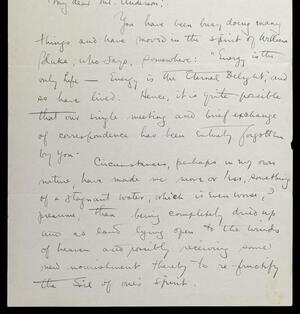 My dear Mr. Anderson:
You have been busy doing many
things and have moved in the spirit of William
Blake, who says, somewhere: "Energy is the
only life — Energy is the Eternal Delight," and
so have lived. Hence, it is quite possible
that our single meeting and brief exchange
of correspondence has been entirely forgotten
by you.
Circumstances, perhaps in my own
nature, have made me more or less, something
of a stagnant water, which is even worse, I
presume, than being completely dried up
and as land lying open to the winds
of heaven and possibly receiving some
new nourishment thereby to re-fructify
the soil of one's spirit.